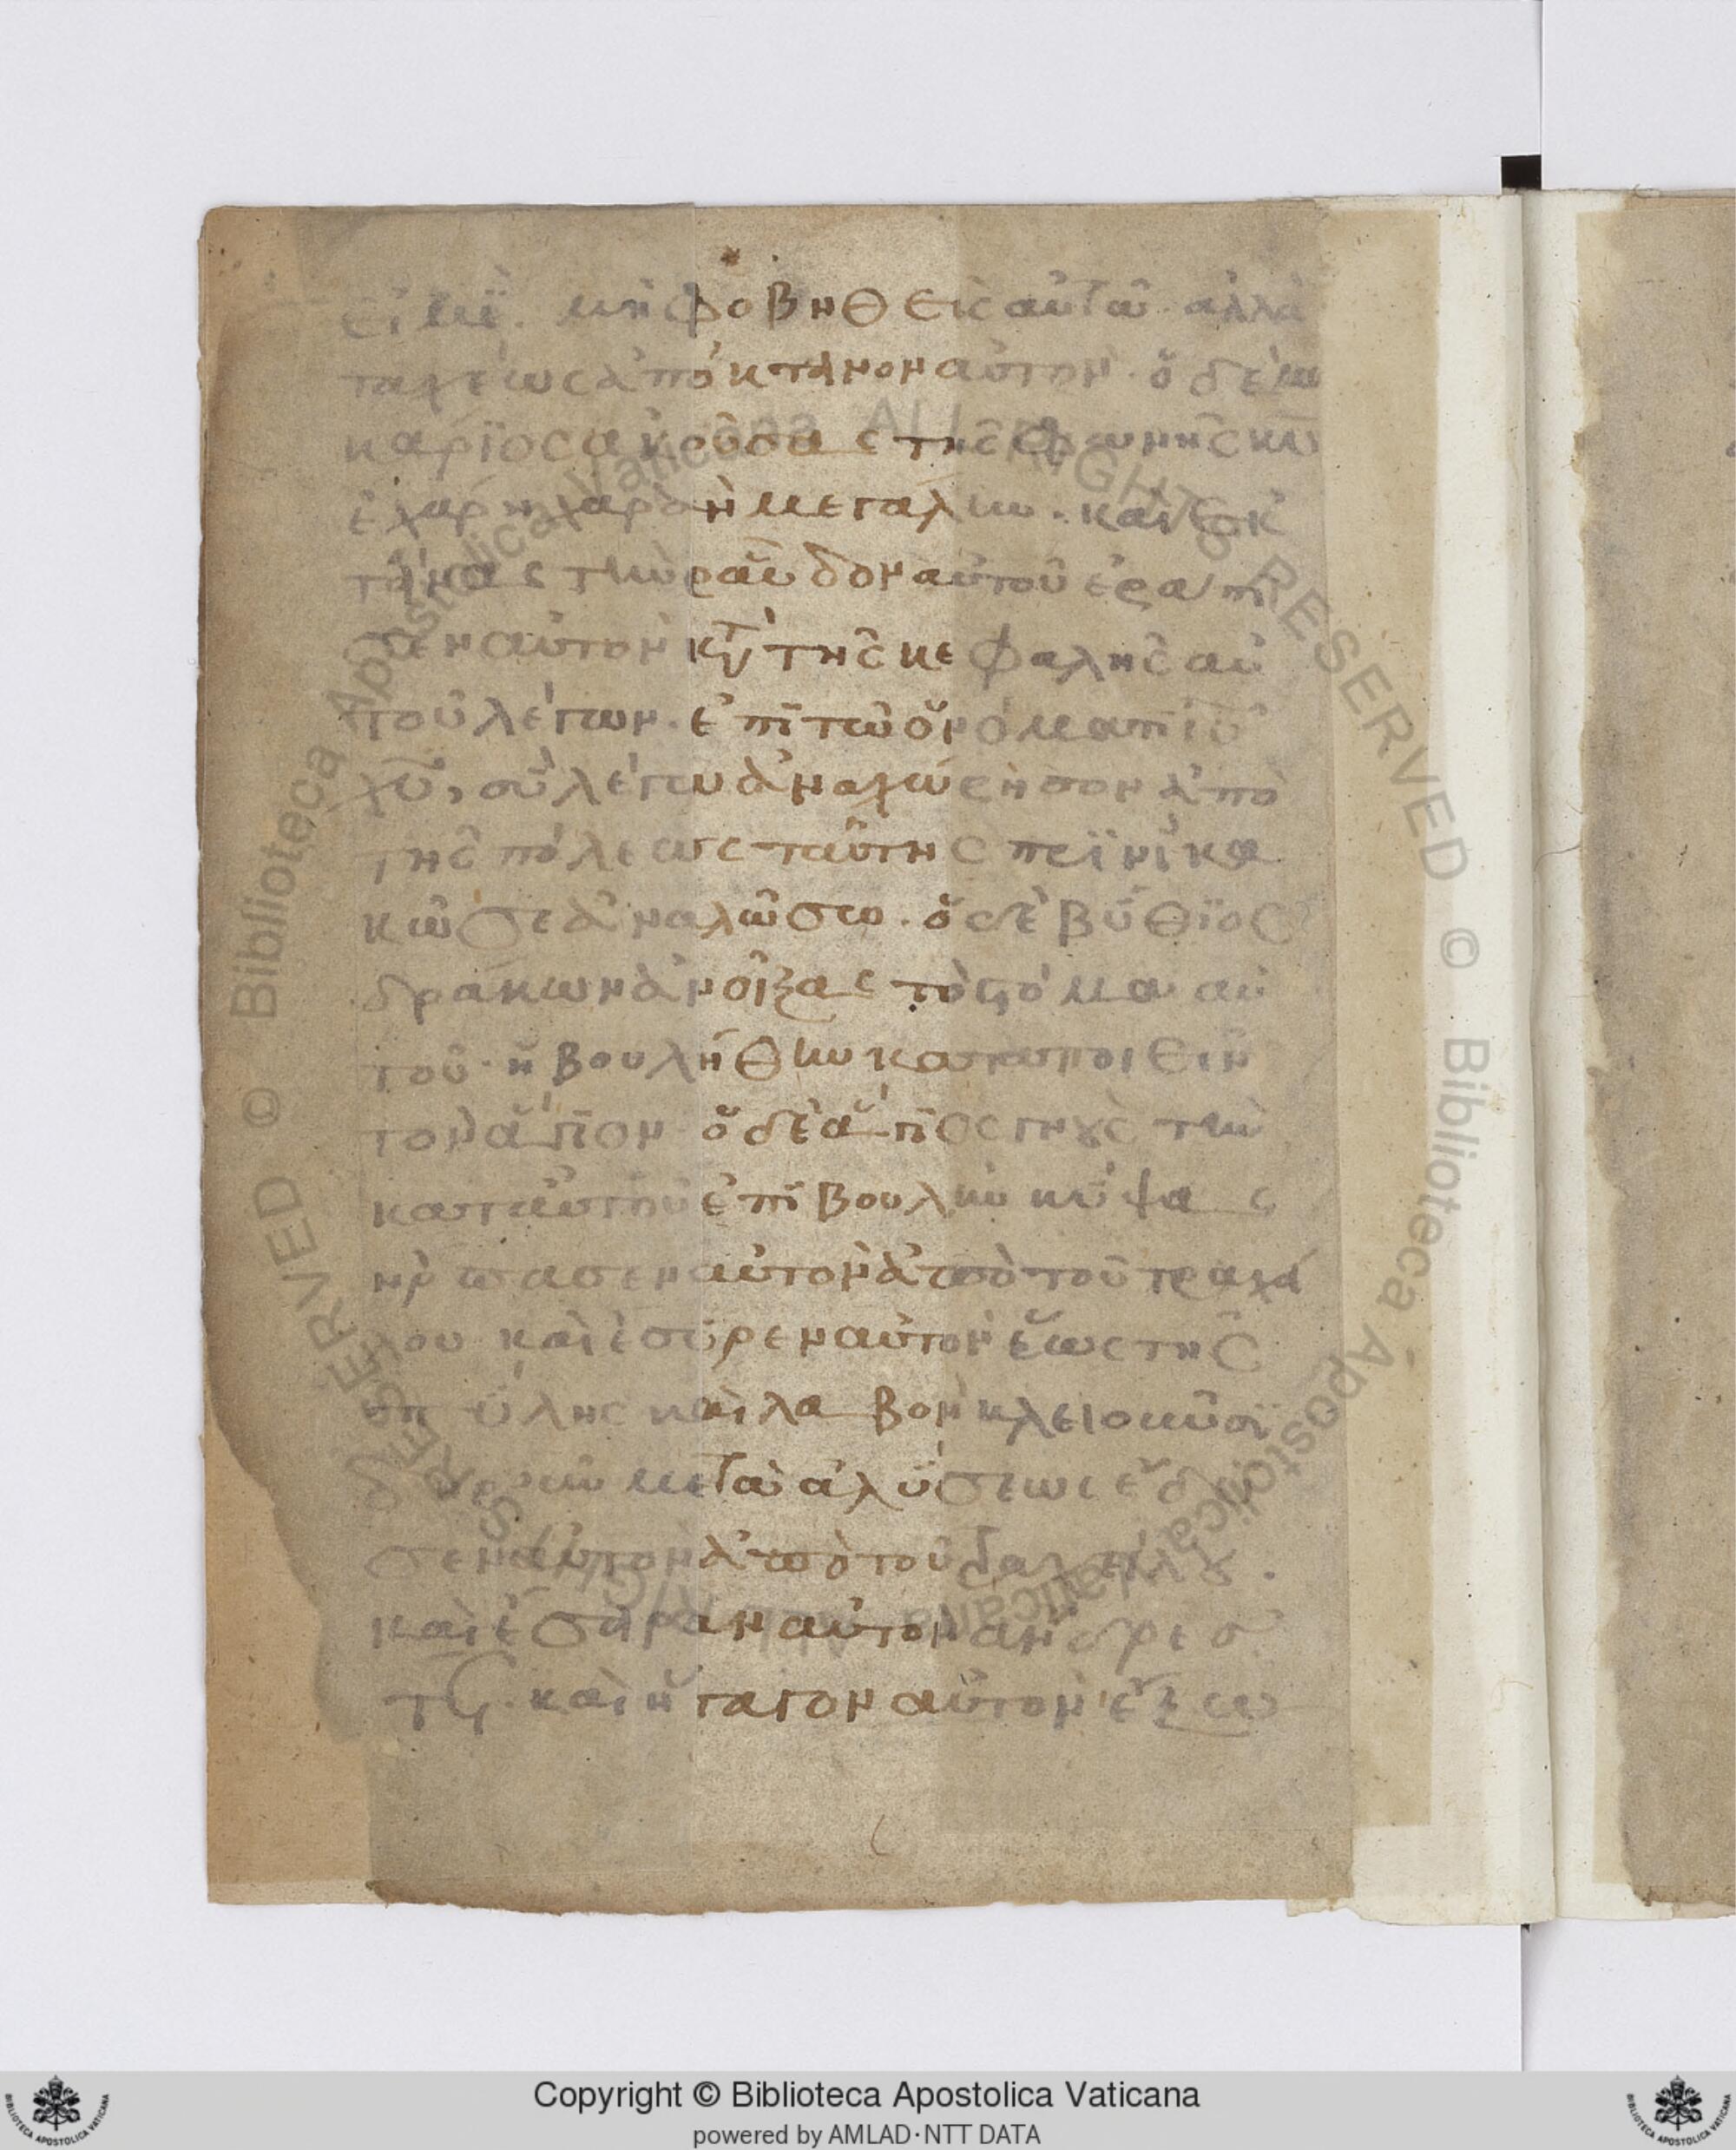 εἰμι. μὴ φοβηθεὶς αὐτῶ ἀλλὰ
ταχέως ἀπόκτηνον αὐτὸν. ὁ δὲ μα
κάριος ἀκούσας τῆς φωνῆς κυ
ἐχάρη χαρὰν μεγάλην. καὶ ἐκ
τήνας τὴν ράυδδον αὐτοῦ ἐράπι
σεν αὐτὸν κτ τῆς κεφαλῆς αὐ
τοῦ λέγων. ἐπὶ τῶ ὀνόματι ιυ
χυ, σοὶ λέγω ἀναχώρησον ἀπὸ
τῆς πόλεως ταύτης πρὶν ἢ κα
κῶς σε ἀναλώσω. ὁ δὲ βύθιος
δράκων ἀνοίξας τὸ στόμα αὐ
τοῦ. ἠβουλήθην καταποιεῖν
τὸν ἅγιον ὁ δὲ ἅγιος γνοὺς τὴν
κατ αὐτοῦ ἐπιβουλὴν κύψας
ἥρπασεν αὐτὸν ἀπὸ τοῦ τραχή
λου καὶ ἔσυρεν αὐτὸν ἕως τῆς
πύλης καὶ λαβὸν κλειὸν σι
δηροῦν μετὰ ἁλύσεως ἔδη
σεν αὐτὸν ἀπὸ τοῦ δακτύλου.
καὶ ἔσηραν αὐτὸν ἄνδρες
τς. καὶ ἤγαγον αὐτὸν ἔξω
Copyright © Biblioteca Apostolica Vaticana
powered by AMLAD·NTT DATA